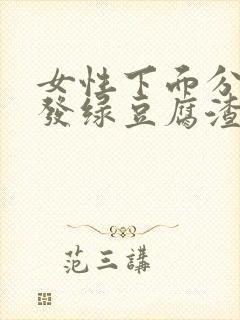 女性下面分
發绿豆腐渣
范三講